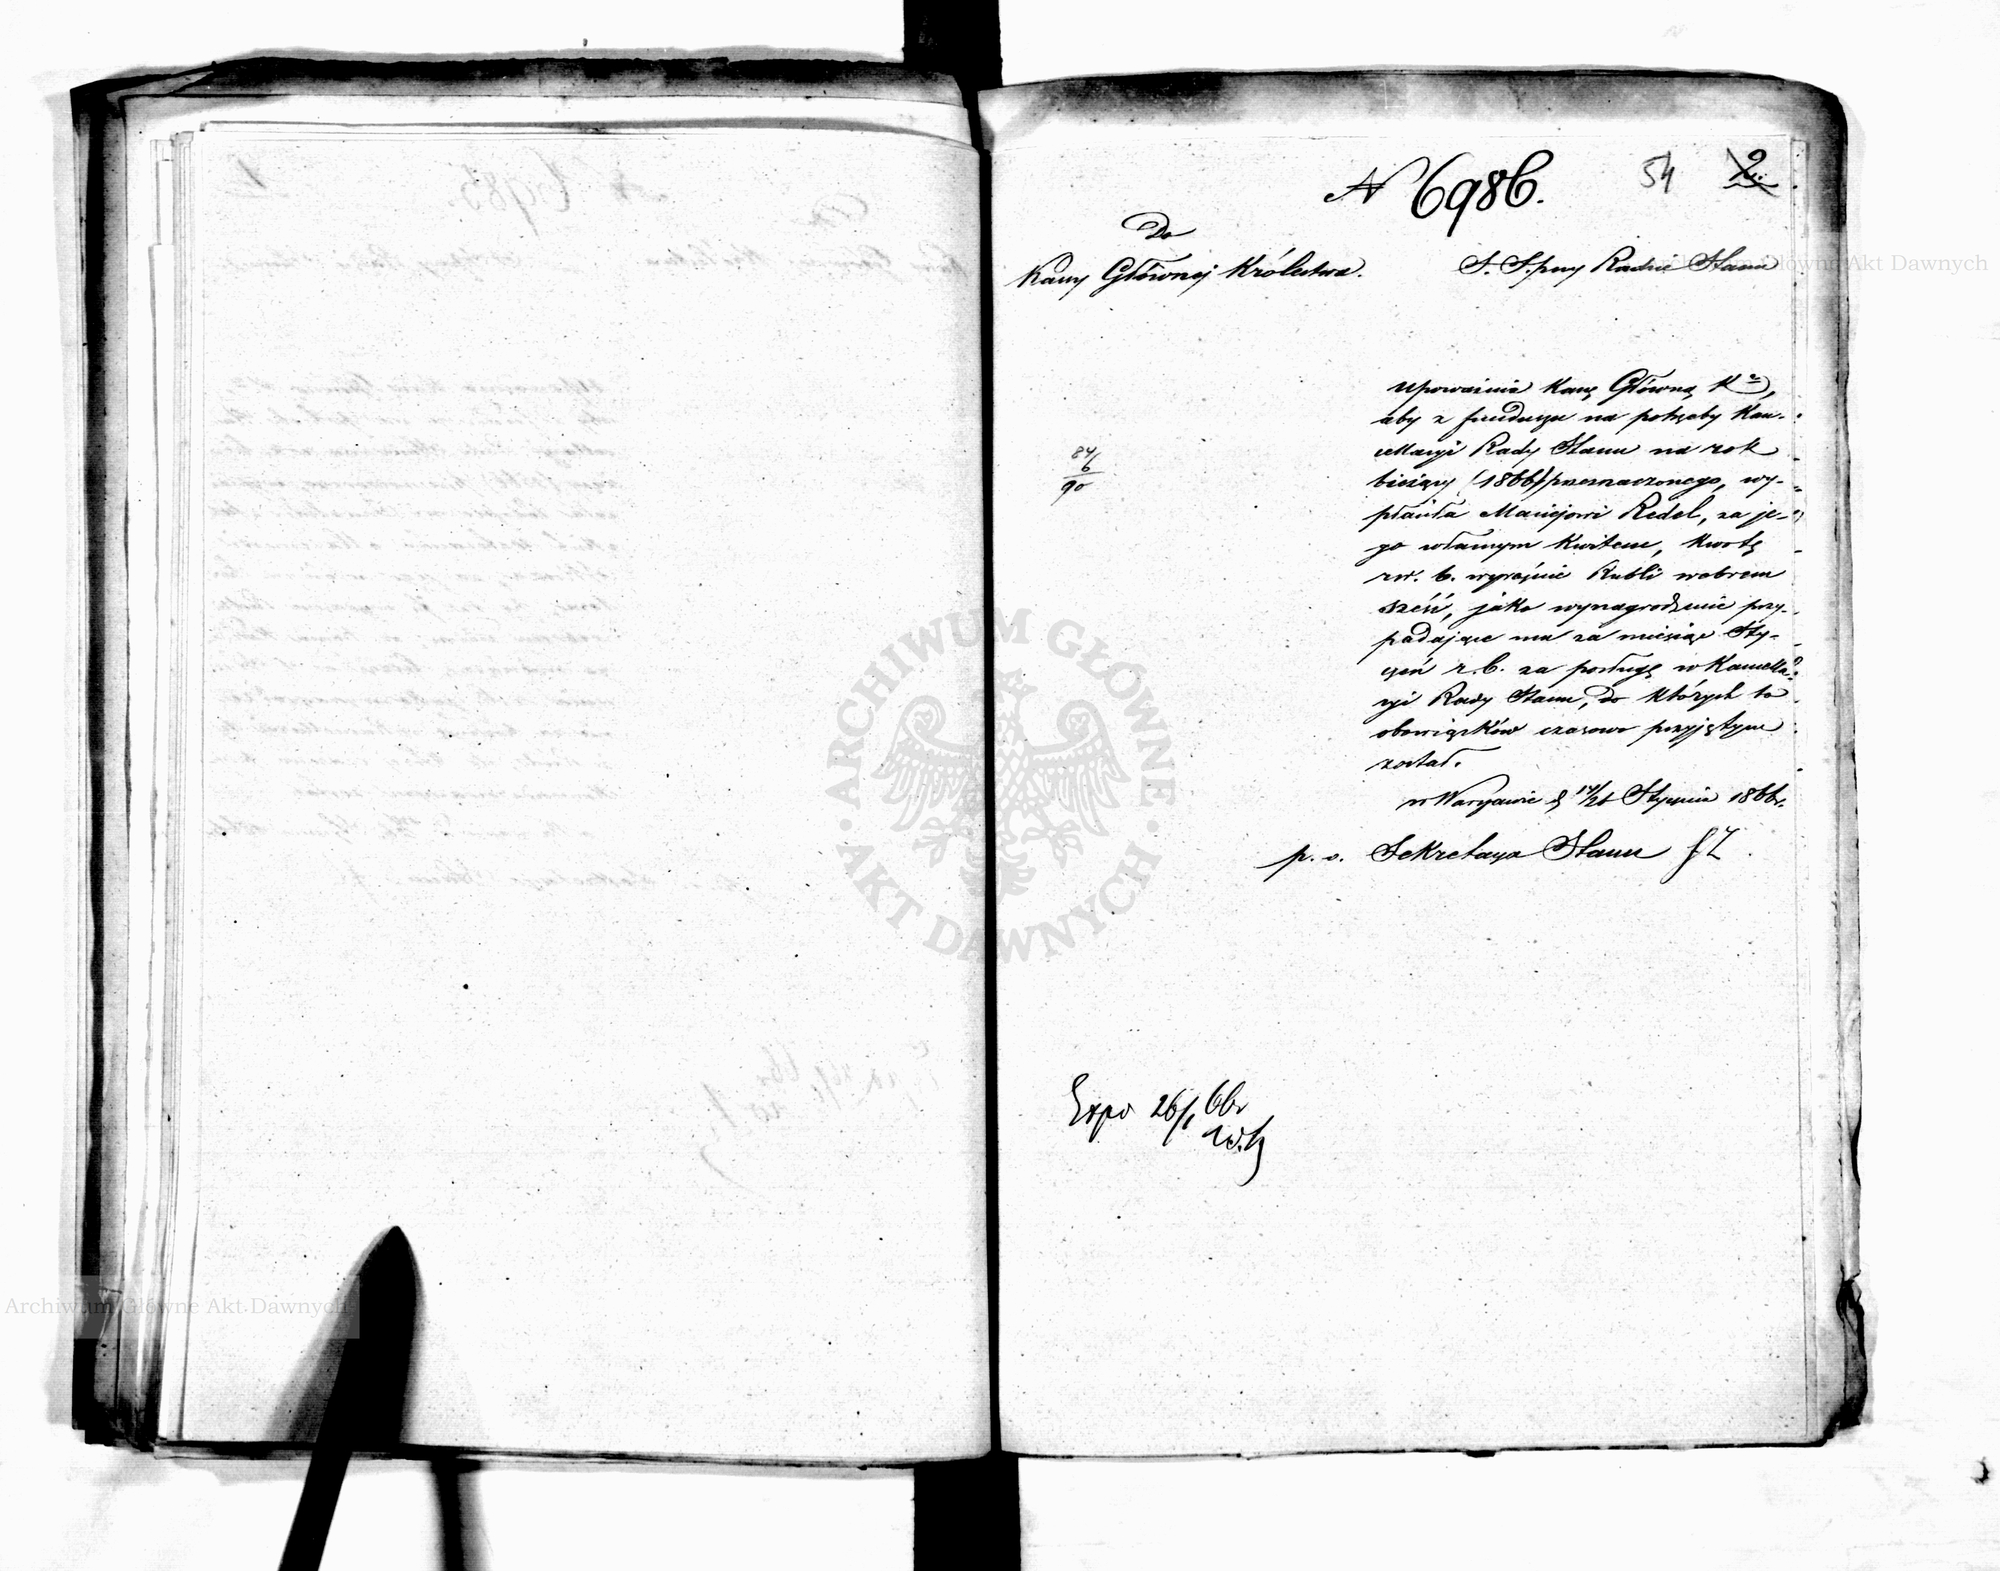 N 6986.
54
2.
Do
Kassy Głównej Królestwa.
S. Spraw Radzie Stanu
Upoważnia Kassę Główną Kr,
aby z funduszu na potrzeby Kan-
cellaryi Rady Stanu na rok
bieżący (1866) przeznaczonego, wy-
płaciła Maciejowi Redel, za je-
go własnym kwitem, kwotę
rsr. 6. wyraźnie Rubli srebrem
sześć, jako wynagrodzenie przy-
padające mu za miesiąc Sty-
czeń r.b. za posługę w Kancella-
ryi Rady Stanu, do których to
obowiązków czasowo przyjętym
został.
w Warszawie d 14/26 Stycznia 1866r.
p. o. Sekretarza Stanu
84
6
90
Expo 26/1 66r
ARCHIWUM GŁÓWNE
AKT DAWNYCH
Archiwum Główne Akt Dawnych
Archiwum Główne Akt Dawnych